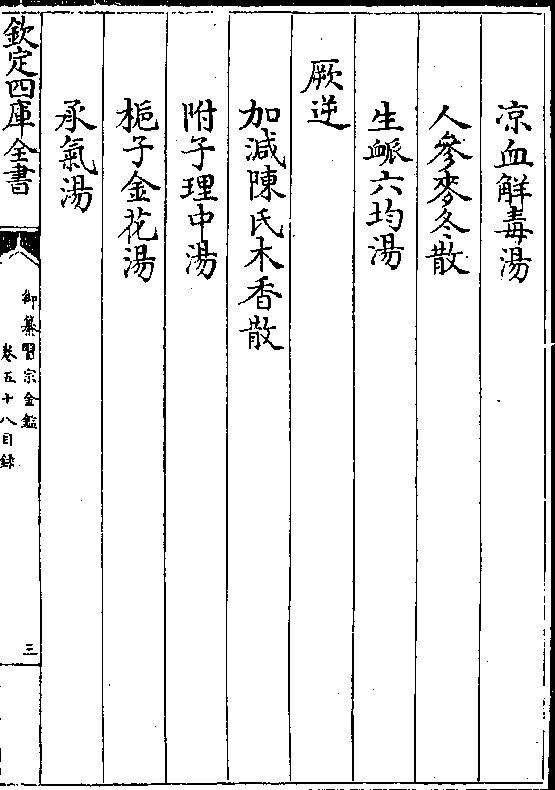 凉血解毒湯
人參麥冬散
生脈六均湯
厥逆
加減陳氏木香散
附子理中湯
梔子金花湯
承氣湯
欽定四庫全書
御纂醫宗金鑑
卷五十八目録
三